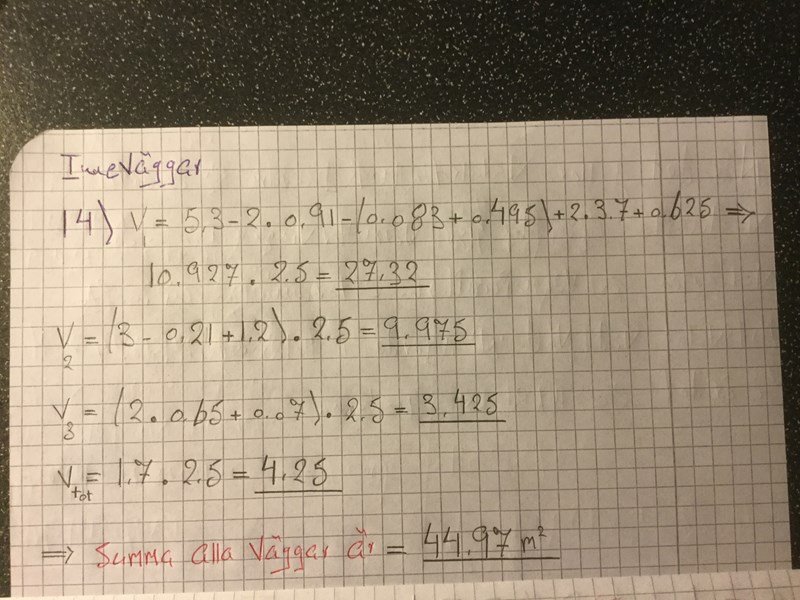 Inneväggar
14) V₁ = 5,3 - 2 · 0,91 - (0.083 + 0.495) + 2 · 3.7 + 0.625 ⇒
10.927 · 2.5 = 27,32
V₂ = (3 - 0,21 + 1,2) · 2.5 = 9.975
V₃ = (2 · 0,65 + 0.07) · 2.5 = 3,425
Vtot = 1,7 · 2,5 = 4,25
⇒ Summa alla Väggar är = 44.97 m²